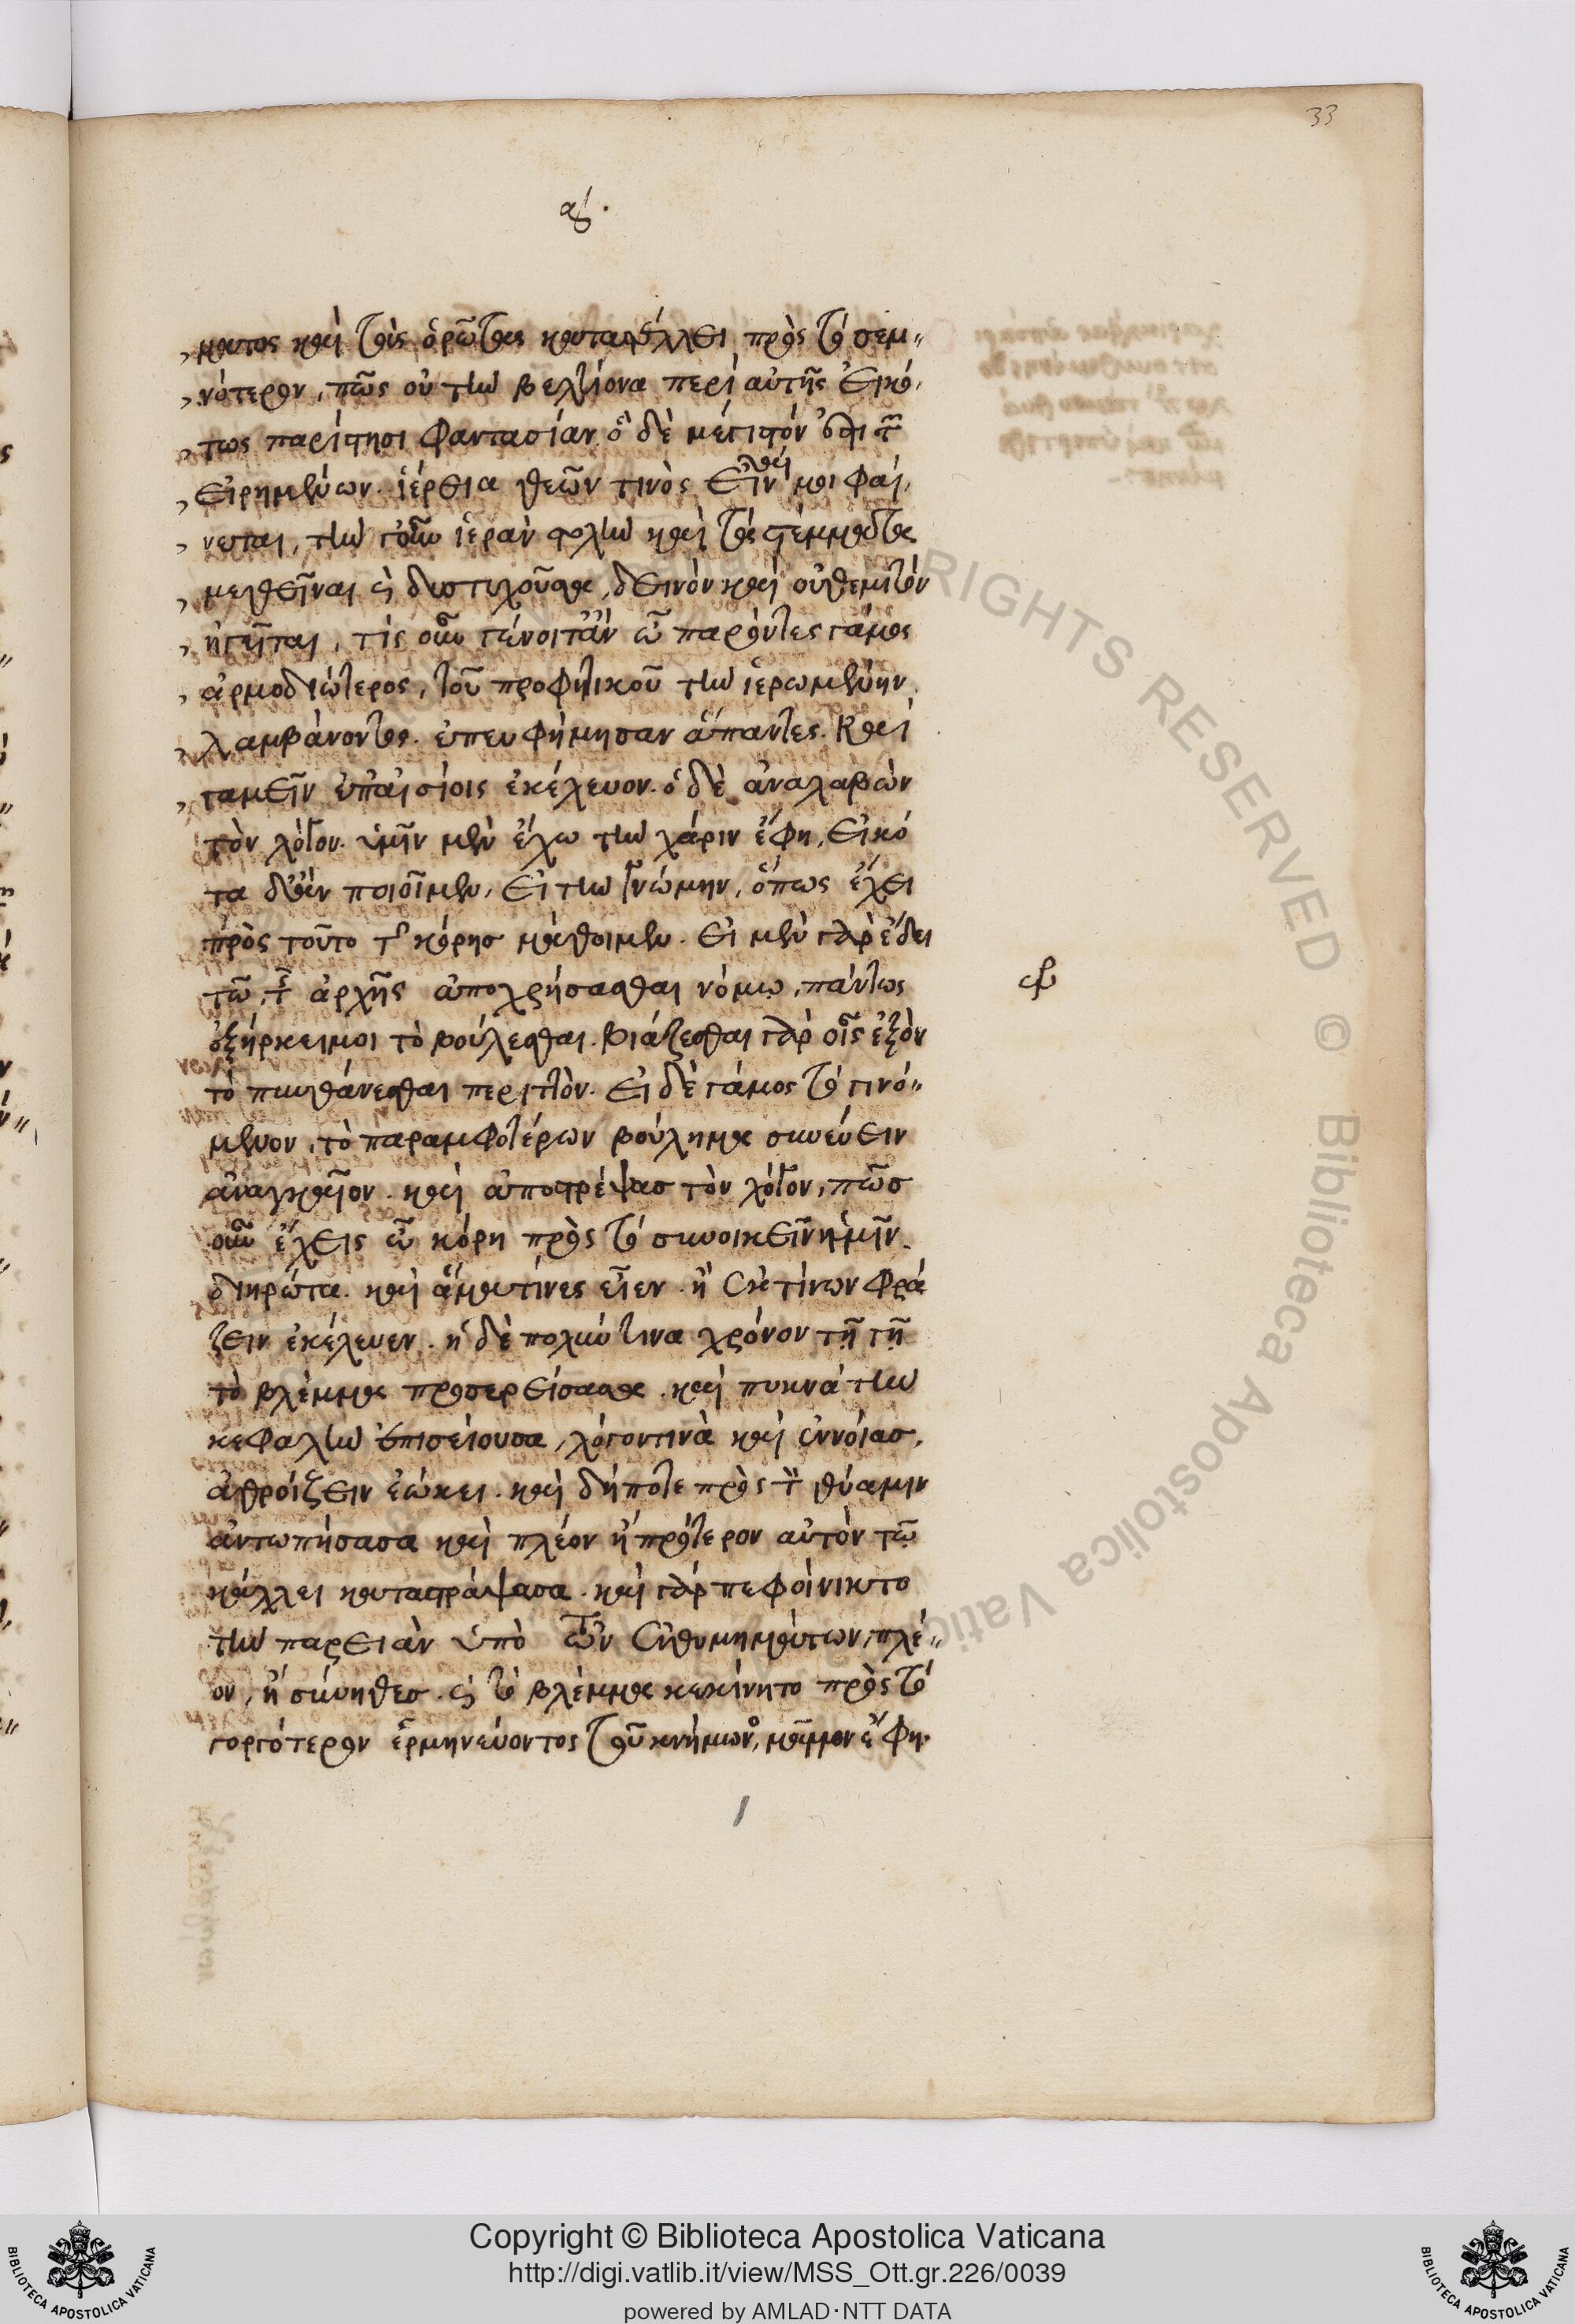 33
αʹ.
ματος καὶ τοὺς ὁρῶντας καταστέλλει πρὸς τὸ σεμ〃
νότερον, πῶς οὐ τὴν βελτίονα περὶ αὐτῆς εἰκό,
τως παρίστησι φαντασίαν. ὃ δὲ μέγιστόν ἐστι τῶν
εἰρημένων. ἱέρεια θεῶν τινὸς εἶναί μοι φαί,
νεται, τὴν γοῦν ἱερὰν στολὴν καὶ τὰ στέμματα
μεθεῖναι καὶ δυστυχοῦσα, δεινὸν καὶ οὐ θεμιτὸν
ἡγεῖται, τίς οὖν γένοιτ' ἂν ὦ παρόντες γάμος
ἁρμοδιώτερος, τοῦ προφητικοῦ τὴν ἱερωμένην
λαμβάνοντος. ἐπευφήμησαν ἅπαντες. καὶ
γαμεῖν ἐπ' αἰσίοις ἐκέλευον. ὁ δὲ ἀναλαβὼν
τὸν λόγον. ὑμῖν μὲν ἔχω τὴν χάριν ἔφη, εἰκό
τα δ' ἂν ποιοῖμεν, εἰ τὴν γνώμην, ὅπως ἔχει
πρὸς τοῦτο τῆς κόρης μάθοιμεν. εἰ μὲν γὰρ ἔδει
τῷ τῆς ἀρχῆς ἀποχρήσασθαι νόμῳ, πάντως
ἐξήρκει μοι τὸ βούλεσθαι. βιάζεσθαι γὰρ οἷς ἐξὸν
τὸ πυνθάνεσθαι περιττόν. εἰ δὲ γάμος τὸ γινό〃
μενον, τὸ παρ' ἀμφοτέρων βούλημα συνεύειν
ἀναγκαῖον. καὶ ἀποστρέψας τὸν λόγον, πῶς
οὖν ἔχεις ὦ κόρη πρὸς τὸ συνοικεῖν ἡμῖν
διηρώτα. καὶ ἅμα τίνες εἶεν. ἢ ἐκ τίνων φρά
ζειν ἐκέλευεν. ἡ δὲ πολύν τινα χρόνον τῇ γῇ
τὸ βλέμμα προσερείσασα. καὶ πυκνὰ τὴν
κεφαλὴν ἐπισείουσα, λόγον τινὰ καὶ ἐννοίας.
ἀθροίζειν ἐῴκει. καὶ δή ποτε πρὸς τὸν θύαμιν
ἀντωπήσασα καὶ πλέον ἢ πρότερον αὐτὸν τῷ
κάλλει καταστράψασα. καὶ γὰρ πεφοίνικτο
τὴν παρειὰν ὑπὸ τῶν ἐνθυμημάτων, πλέ〃
ον, ἢ σύνηθες. καὶ τὸ βλέμμα κεκίνητο πρὸς τὸ
γοργότερον ἑρμηνεύοντος τοῦ κνήμωνος, μᾶλλον ἔφη.
RIGHTS RESERVED © Biblioteca Apostolica Vaticana
Copyright © Biblioteca Apostolica Vaticana
http://digi.vatlib.it/view/MSS_Ott.gr.226/0039
powered by AMLAD·NTT DATA
BIBLIOTECA APOSTOLICA VATICANA
BIBLIOTECA APOSTOLICA VATICANA